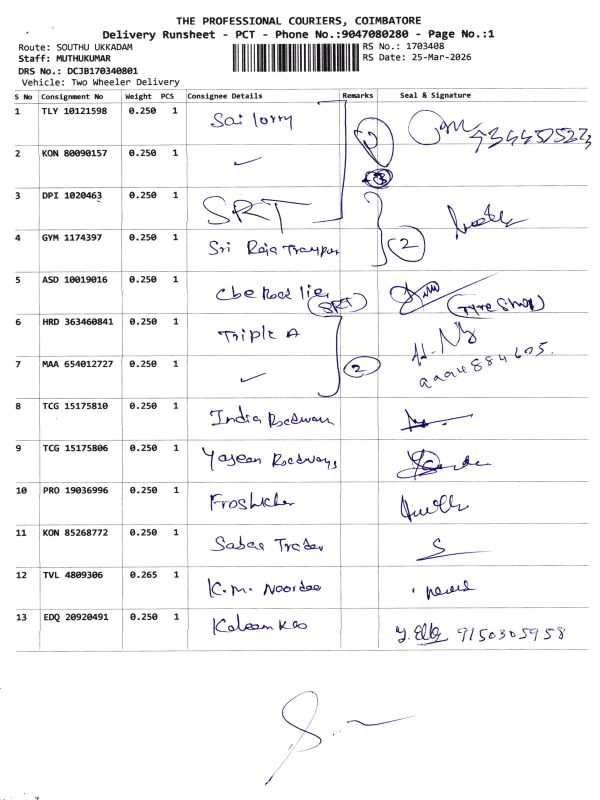 THE PROFESSIONAL COURIERS, COIMBATORE
Delivery Runsheet - PCT - Phone No.:9047080280 - Page No.:1
Route: SOUTHU UKKADAM
RS No.: 1703408
Staff: MUTHUKUMAR
RS Date: 25-Mar-2026
DRS No.: DCJB170340801
Vehicle: Two Wheeler Delivery
S No Consignment No Weight PCS Consignee Details Remarks Seal & Signature
1 TLY 10121598 0.250 1 Sai lorry
2 KON 80090157 0.250 1 ✓
3 DPI 1020463 0.250 1 SRT
4 GYM 1174397 0.250 1 Sri Raja 2
5 ASD 10019016 0.250 1 Cbe (SRT) (Tyre Shop)
6 HRD 363460841 0.250 1 Triple A
7 MAA 654012727 0.250 1 ✓ 2
8 TCG 15175810 0.250 1 India
9 TCG 15175806 0.250 1 Yaseen Roadways
10 PRO 19036996 0.250 1
11 KON 85268772 0.250 1
12 TVL 4809306 0.265 1 K.M.
13 EDQ 20920491 0.250 1 9150305958